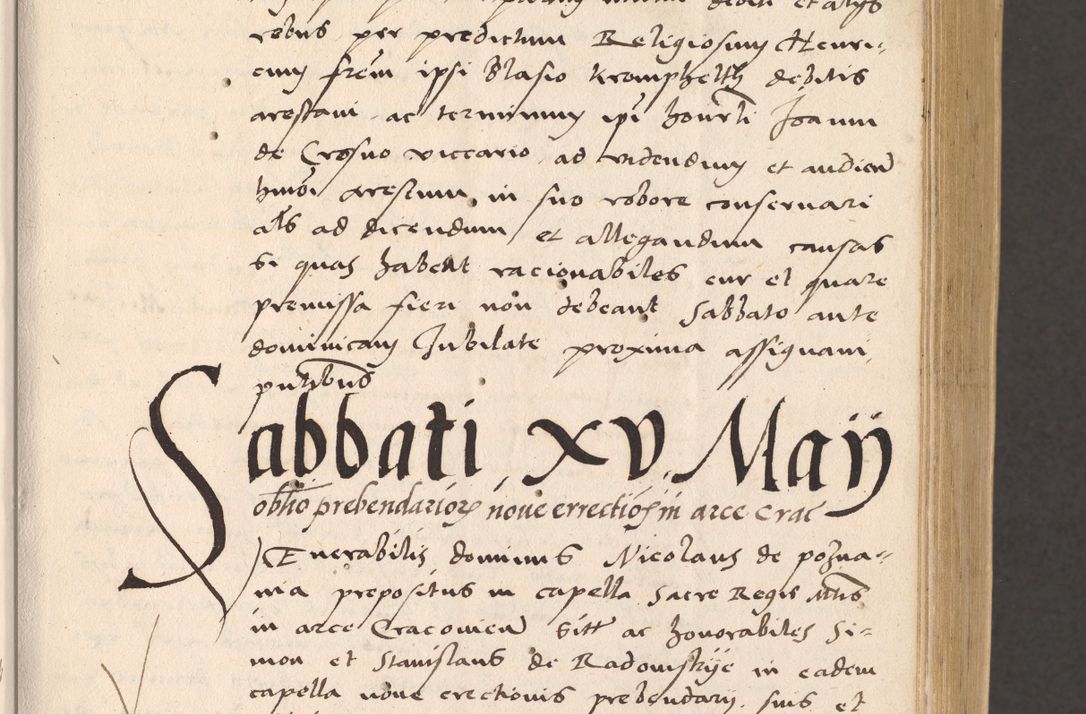 robus per predictum Religiosum Henri-
cum frem ipsi Blasio Krompholth debitis
arestavi ac terminum ipi honorli Joanni
de Crosno viccario ad videndum et audiend
hmoi arestum in suo robore conservari
als ad dicendum et allegandum causas
si quas habent racionabiles cur et quare
premissa fieri non debeant Sabbato ante
dominicam Jubilate proxima assignavi
pntibus
Sabbati xv Maÿ
oblio prebendariorum nove errectionis in arce Crac
Venerabilis dominus Nicolaus de pozna-
nia prepositus in capella Sacre Regis Mtis
in arce Cracovien Sitt ac honorabiles Si-
mon et Stanislaus de Radomskye in eadem
capella nove erectionis prebendarii suis et